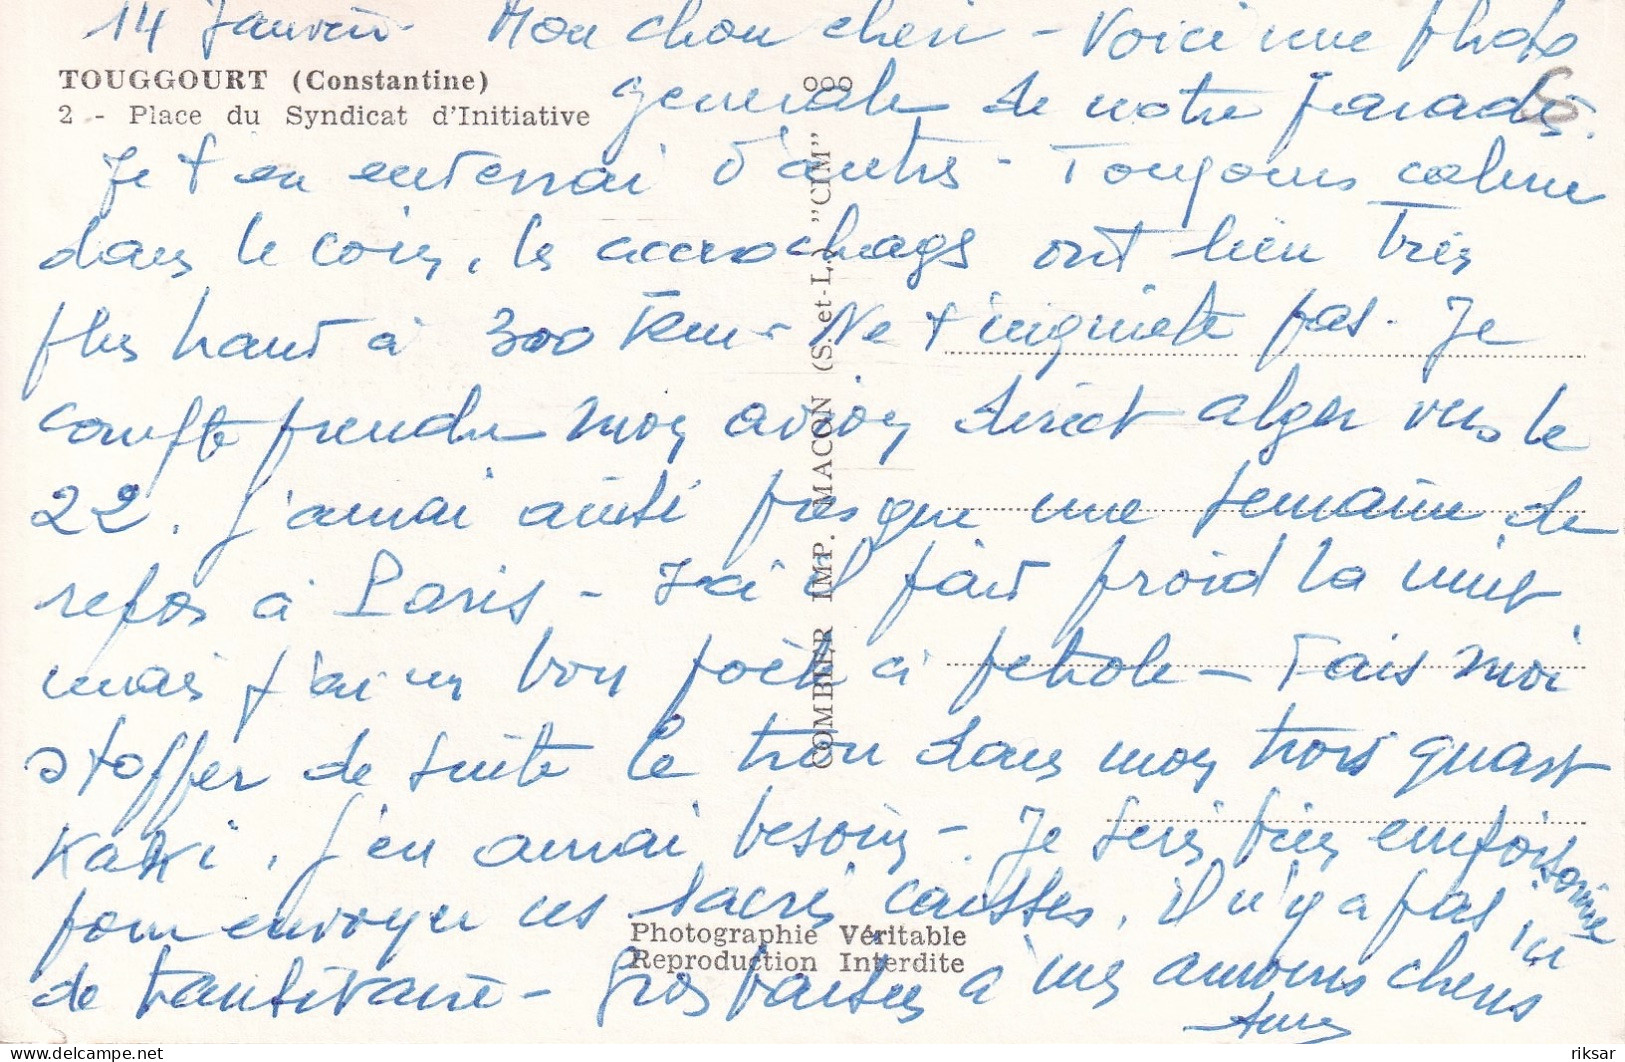 14 Janvier - Mon chou cheri - Voici une photo
TOUGGOURT (Constantine)
generale de notre paradis.
2 - Place du Syndicat d'Initiative
Je t'en enverrai d'autres - Toujours calme
dans le coin, les accrochages ont lieu très
plus haut à 300 km - Ne t'inquiete pas. Je
compte prendre mon avion direct alger vers le
22. J'aurai ainsi presque une semaine de
repos à Paris - Ici il fait froid la nuit
mais j'ai un bon poële à petrole - Fais moi
stopper de suite le trou dans mon trois quart
Kaki, j'en aurai besoin - Je suis bien empoisonné
pour envoyer ces sacrés caisses, il n'y a pas ici
de transitaire - Gros baisers à mes amours cheris
COMBIER IMP. MACON (S.-et-L.) "CIM"
Photographie Véritable
Reproduction Interdite
delcampe.net
riksar